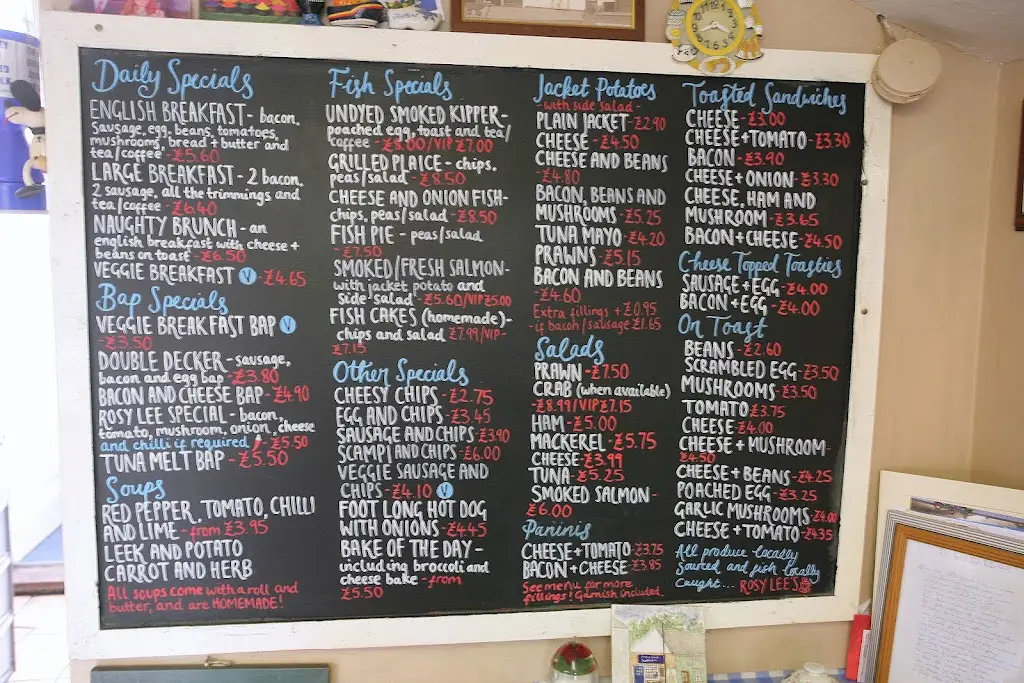 Daily Specials
ENGLISH BREAKFAST - bacon,
sausage, egg, beans, tomatoes,
mushrooms, bread + butter and
tea/coffee - £5.60
LARGE BREAKFAST - 2 bacon,
2 sausage, all the trimmings and
tea/coffee - £6.40
NAUGHTY BRUNCH - an
english breakfast with cheese +
beans on toast - £6.50
VEGGIE BREAKFAST V - £4.65
Bap Specials
VEGGIE BREAKFAST BAP V
- £3.50
DOUBLE DECKER - sausage,
bacon and egg bap - £3.80
BACON AND CHEESE BAP - £4.90
ROSY LEE SPECIAL - bacon,
tomato, mushroom, onion, cheese
and chilli is required - £5.50
TUNA MELT BAP - £5.50
Soups
RED PEPPER, TOMATO, CHILLI
AND LIME - from £3.95
LEEK AND POTATO
CARROT AND HERB
All soups come with a roll and
butter, and are HOMEMADE!
Fish Specials
UNDYED SMOKED KIPPER-
poached egg, toast and tea/
coffee - £8.00/VIP £7.00
GRILLED PLAICE - chips,
peas/salad - £8.50
CHEESE AND ONION FISH-
chips, peas/salad - £8.50
FISH PIE - peas/salad
- £7.50
SMOKED/FRESH SALMON-
with jacket potato and
side salad - £5.60/VIP £5.00
FISH CAKES (homemade)-
chips and salad £7.99/VIP-
£7.15
Other Specials
CHEESY CHIPS - £2.75
EGG AND CHIPS - £3.45
SAUSAGE AND CHIPS - £3.90
SCAMPI AND CHIPS - £6.00
VEGGIE SAUSAGE AND
CHIPS - £4.10 V
FOOT LONG HOT DOG
WITH ONIONS - £4.45
BAKE OF THE DAY -
including broccoli and
cheese bake - from
£5.50
Jacket Potatoes
- with side salad -
PLAIN JACKET - £2.90
CHEESE - £4.50
CHEESE AND BEANS
- £4.80
BACON, BEANS AND
MUSHROOMS - £5.25
TUNA MAYO - £4.20
PRAWNS - £5.15
BACON AND BEANS
- £4.60
Extra fillings + £0.95
- if bacon/sausage £1.65
Salads
PRAWN - £7.50
CRAB (when available)
- £8.99/VIP £7.15
HAM - £5.00
MACKEREL - £5.75
CHEESE - £3.99
TUNA - £5.25
SMOKED SALMON -
£6.00
Paninis
CHEESE + TOMATO - £3.75
BACON + CHEESE - £3.85
See menu for more
fillings! Garnish included.
Toasted Sandwiches
CHEESE - £3.00
CHEESE + TOMATO - £3.30
BACON - £3.90
CHEESE + ONION - £3.30
CHEESE, HAM AND
MUSHROOM - £3.65
BACON + CHEESE - £4.50
Cheese Topped Toasties
SAUSAGE + EGG - £4.00
BACON + EGG - £4.00
On Toast
BEANS - £2.60
SCRAMBLED EGG - £3.50
MUSHROOMS - £3.50
TOMATO £3.75
CHEESE £4.00
CHEESE + MUSHROOM -
£4.50
CHEESE + BEANS - £4.25
POACHED EGG - £3.25
GARLIC MUSHROOMS - £4.00
CHEESE + TOMATO - £4.35
All produce locally
Sourced and fish locally
Caught... ROSY LEE'S